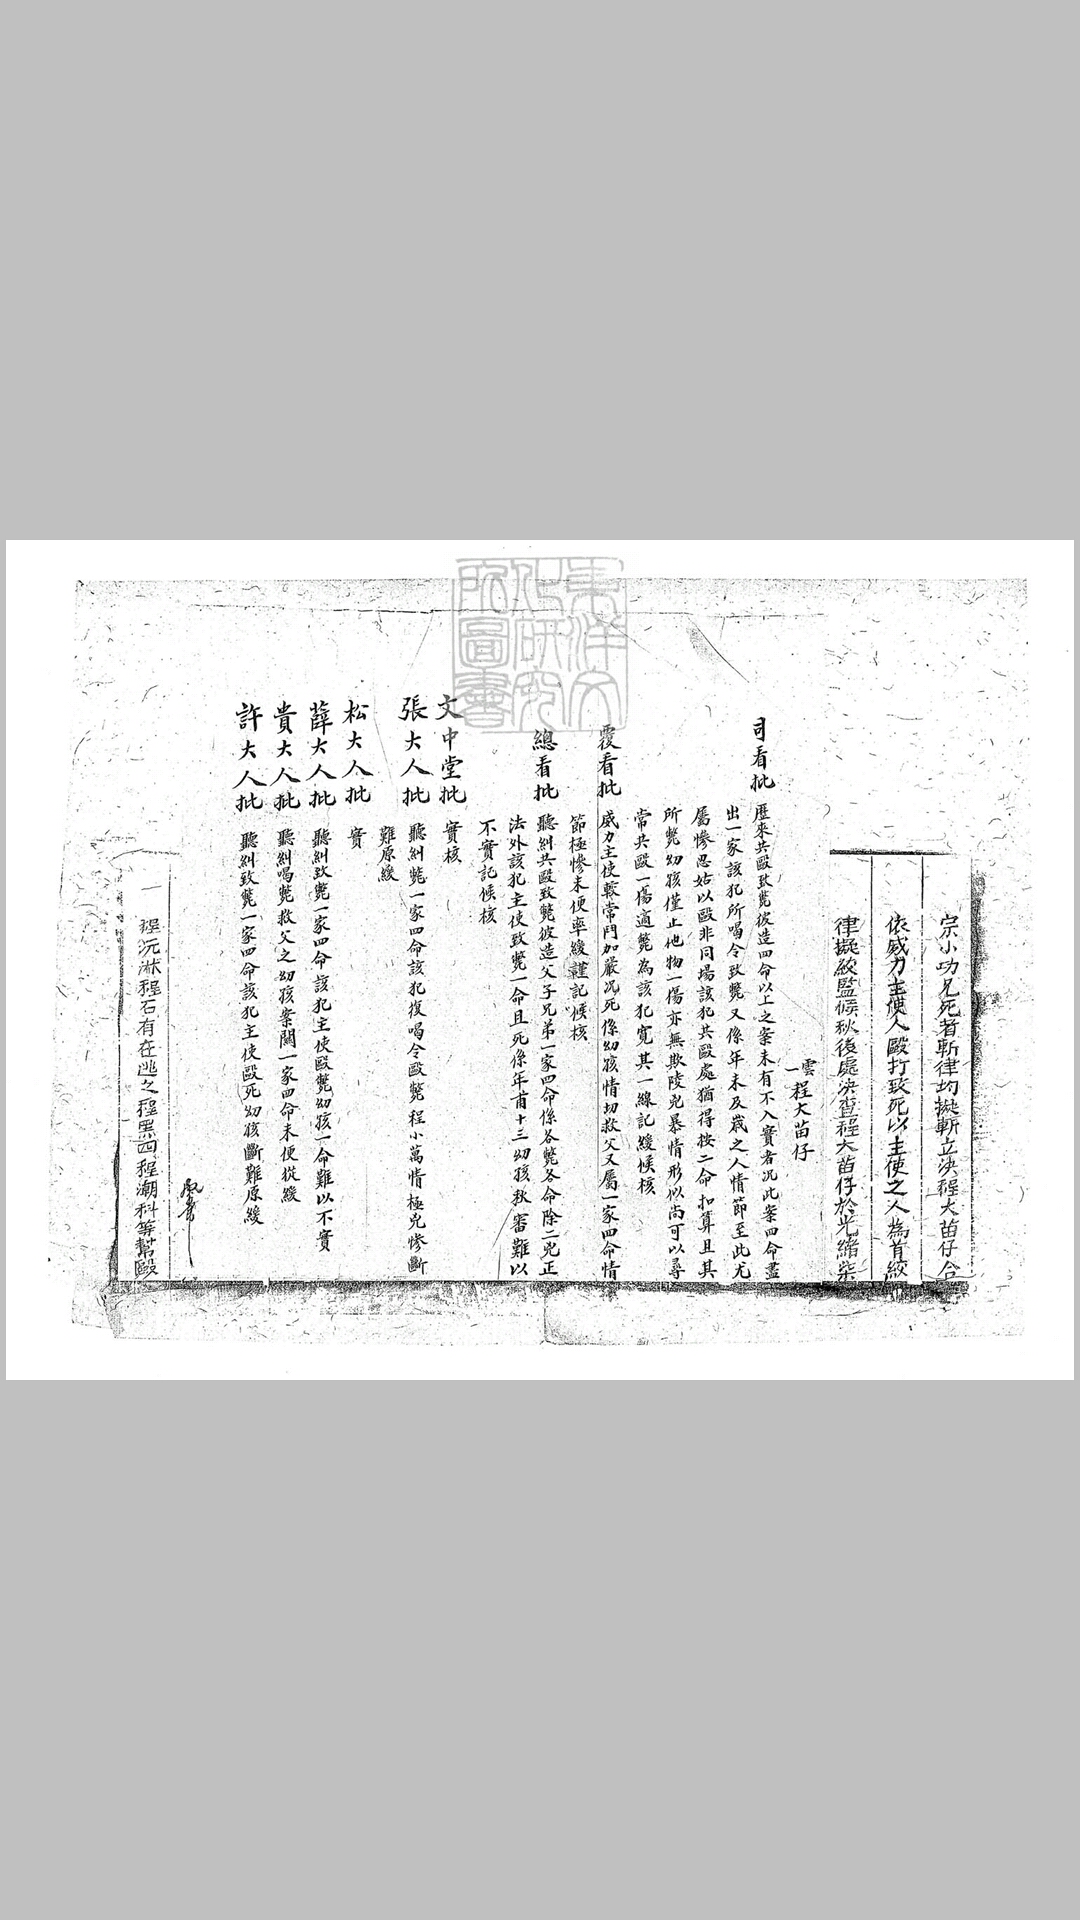 宗小功兄死者斬律均擬斬立決程大苗仔合
依威力主使人毆打致死以主使之人為首絞
律擬絞監候秋後處決查程大苗仔於光緒柒
雲
一程大苗仔
司看批 歷來共毆致斃彼造四命以上之案未有不入實者況此案四命盡
出一家該犯所喝令致斃又係年未及歲之人情節至此尤
屬慘忍姑以毆非同場該犯共毆處猶得按二命扣算且其
所斃幼孩僅止他物一傷亦無欺陵兇暴情形似尚可以尋
常共毆一傷適斃為該犯寬其一線記緩候核
覆看批 威力主使較常鬥加嚴況死係幼孩情切救父又屬一家四命情
節極慘未便率緩謹記候核
總看批 聽糾共毆致斃彼造父子兄弟一家四命係各斃各命除二兇正
法外該犯主使致斃一命且死係年甫十三幼孩秋審難以
不實記候核
文中堂批 實核
張大人批 聽糾斃一家四命該犯復喝令毆斃程小萬情極兇慘斷
難原緩
松大人批 實
薛大人批 聽糾致斃一家四命該犯主使毆斃幼孩一命難以不實
貴大人批 聽糾喝斃救父之幼孩案關一家四命未便從緩
許大人批 聽糾致斃一家四命該犯主使毆死幼孩斷難原緩
一 程沅淋程石有在逃之程黑四程潮科等幫毆
東洋文化研究所圖書